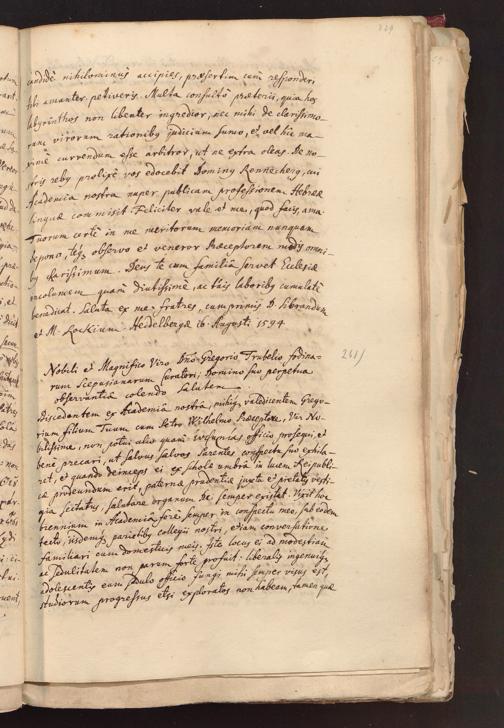 229
candidè nihilominus accipies, præsertim cum responderi
tibi amanter petiveris. Multa consultò præterii, quia hos
labyrinthos non libenter ingredior, nec mihi de clarissimo-
rum virorum rationibq judicium sumo, et vel hic ma-
ximè currendum esse arbitror, ut ne extra oleas. De no-
stris rebq prolixè vos edocebit Dominq Rennecherq, cui
Academia nostra nuper publicam professionem Hebrææ
linguæ commisit. Feliciter vale et me, quod facis, ama.
Tuorum certè in me meritorum memoriam nunquam
depono, teq observo et veneror Præceptorem modis omni-
bq clarissimum. Deus te cum familia servet Ecclesiæ
incolumem quàm diutissimè, ac tuis laboribq cumulatè
benedicat. Saluta ex me fratres, cumprimis D. Librandum
et M. Lockium. Heidelbergæ 16 Augusti 1594
261)
Nobili et Magnifico Viro Dno Gregorio Trubelio fodina-
rum Scepusianarum Curatori; Domino suo perpetua
observantia colendo Salutem
Discedentem ex Academia nostra, mihiq valedicentem Grego-
rium filium Tuum cum Petro Wilhelmo Præceptore, Vir No-
bilissime, non potui alio quàm officio prosequi, et
bene precari, ut salvus salvos Parentes conspectu suo exhila-
ret, et quando deinceps ei ex scholæ umbra in lucem Reipubli-
cæ prodeundum erit, paternæ prudentiæ juxta et pietatis vesti-
gia sectatus, salutare organum Dei semper existat. Vixit hoc
biennium in Academia ferè semper in conspectu meo, sub eodem
tecto, iisdemq parietibq collegii nostri, etiam conversatione
familiari cum domesticis meis. Iste locus ei ad modestiam
ac sedulitatem non parum forte profuit: liberalis ingeniiq
adolescentis eum sedulo officio fungi mihi semper visus est
studiorum progressus etsi exploratos non habeam, tamen quæ